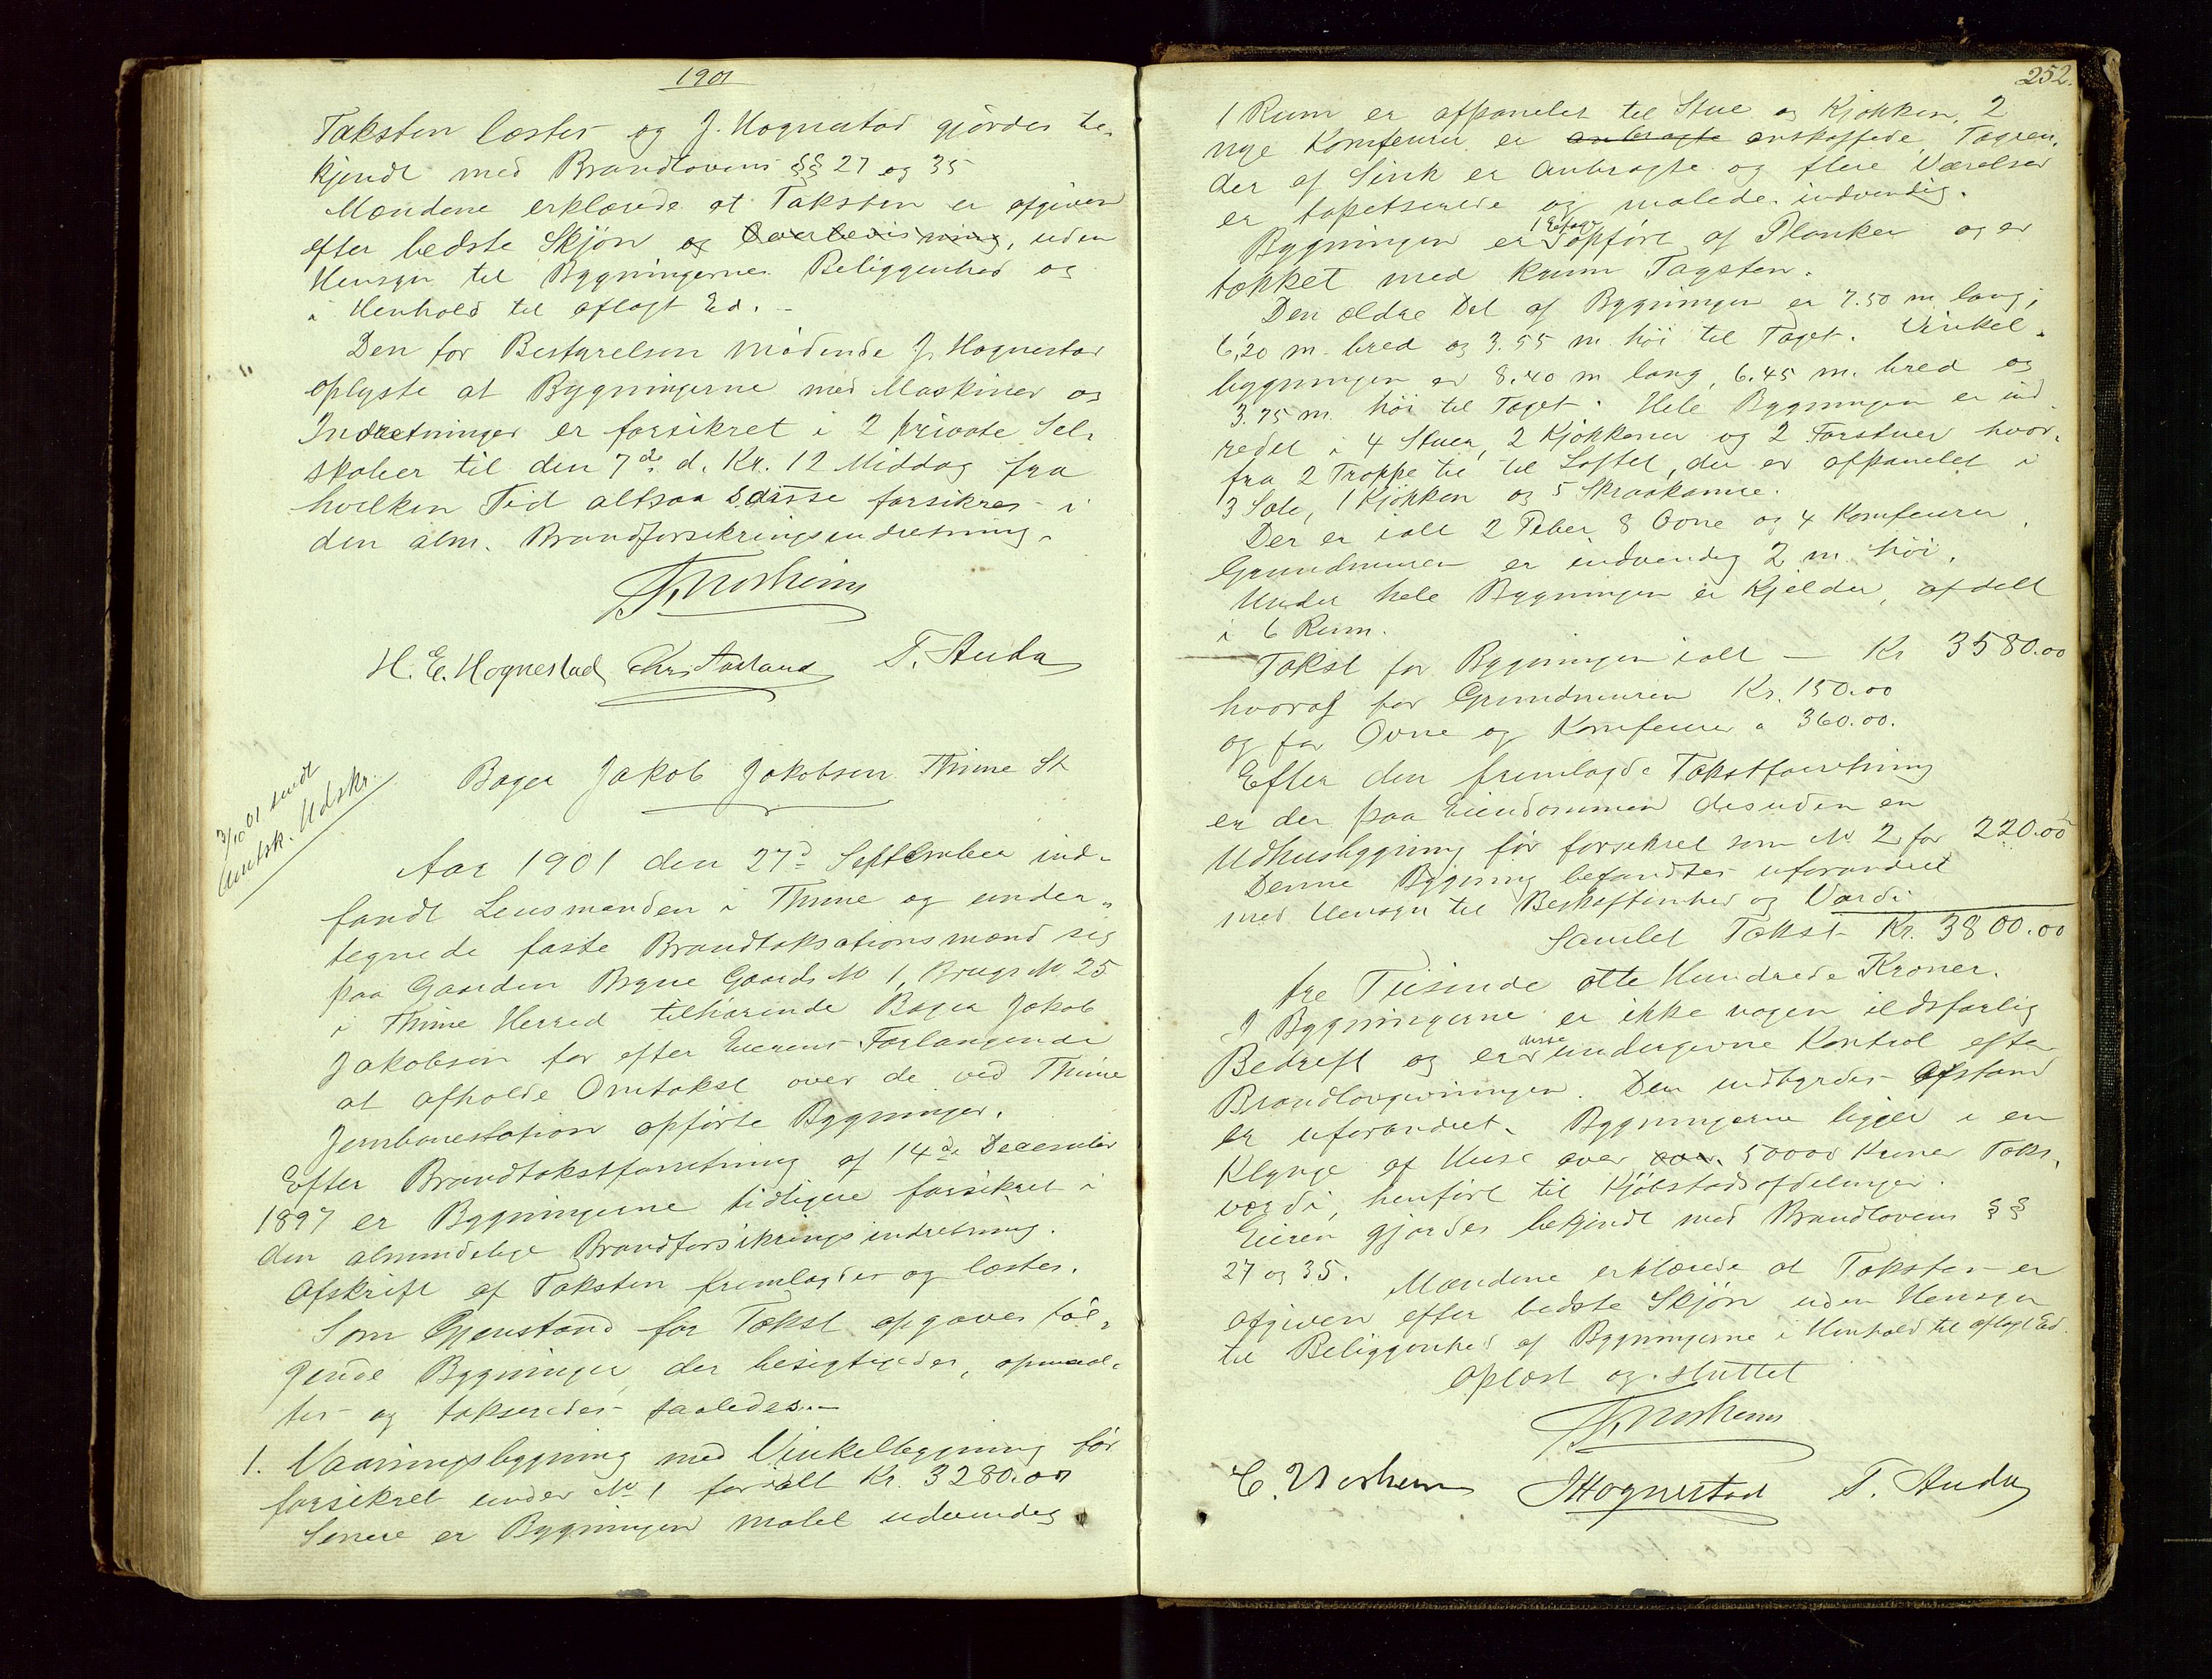 1901
Taksten læstes og J. Hognestad gjordes be-
kjendt med Brandlovens §§ 27 og 35
Mændene erklærede at Taksten er afgiven
efter bedste Skjøn og Overbevisning, uden
Hensyn til Bygningernes Beliggenhed og
i Henhold til aflagt Ed. -
Den for Bestyrelsen mødende J. Hognestad
oplyste at Bygningerne med Maskiner og
Indretninger er forsikret i 2 private Sel-
skaber til den 7de d. Kl. 12 Middag fra
hvilken Tid altsaa disse forsikres i
den alm. Brandforsikringsindretning.
H. E. Hognestad Chr. T. Auda
3/10 01 sendt
Amtsk. Udskr.
Bager Jakob Jakobsen Thime St
Aar 1901 den 27de September ind-
fandt Lensmanden i Thime og under-
tegnede faste Brandtaksationsmænd sig
paa Gaarden Bryne Gaards No 1, Brugs No 25
i Thime Herred tilhørende Bager Jakob
Jakobsen for efter Eierens Forlangende
at afholde Omtakst over de ved Thime
Jernbanestation opførte Bygninger.
Efter Brandtakstforretning af 14de December
1897 er Bygningerne tidligere forsikret i
den almindelige Brandforsikringsindretning.
Afskrift af Taksten fremlagdes og læstes.
Som Gjenstand for Takst opgaves føl-
gende Bygninger, der besigtigedes, opmaal-
tes og takseredes saaledes. -
1. Vaaningsbygning med Vinkelbygning før
forsikret under No 1 for ialt Kr. 3280.00
Senere er Bygningen malet udvendig
252.
1 Rum er afpanelet til Stue og Kjøkken, 2
nye Komfeurer er anbragte anskaffede, Tagren-
der af Sink er anbragte og flere Værelser
er tapetserede og malede indvendig.
1 Etage
Bygningen er opført af Planker og er
tækket med krum Tagsten.
Den ældre Del af Bygningen er 7.50 m lang,
6,20 m. bred og 3.55 m. høi til Taget. Vinkel-
bygningen er 8.40 m lang, 6.45 m. bred og
3.75 m høi til Taget. Hele Bygningen er ind-
redet i 4 Stuer, 2 Kjøkkener og 2 Forstuer hvor-
fra 2 Trapper til Loftet, der er afpanelet i
3 Sale, 1 Kjøkken og 5 Skraakamre.
Der er ialt 2 Piber, 8 Ovne og 4 Komfeurer.
Grundmuren er indvendig 2 m. høi.
Under hele Bygningen er Kjelder, afdelt
i 6 Rum.
Takst for Bygningen ialt — Kr 3580.00
hvoraf for Grundmuren Kr. 150.00
og for Ovne og Komfeurer " 360.00.
Efter den fremlagde Takstforretning
er der paa Eiendommen desuden en
Udhusbygning før forsikret som No 2 for 220.00
Denne Bygning befandtes uforandret
med Hensyn til Beskaffenhed og Værdi
Samlet Takst Kr. 3800.00
tre Tusinde otte Hundrede Kroner.
I Bygningerne er ikke nogen ildsfarlig
Bedrift og er disse undergivne Kontrol efter
Brandlovgivningen. Den indbyrdes Afstand
er uforandret. Bygningerne ligger i en
Klynge af Huse over 50000 Kroner Taks-
værdi, henført til Kjøbstadsafdelinger.
Eieren gjordes bekjendt med Brandlovens §§
27 og 35. Mændene erklærede at Taksten er
afgiven efter bedste Skjøn uden Hensyn
til Beliggenhed af Bygningerne i Henhold til aflagt Ed.
Oplæst og sluttet
JHognestad T. Auda